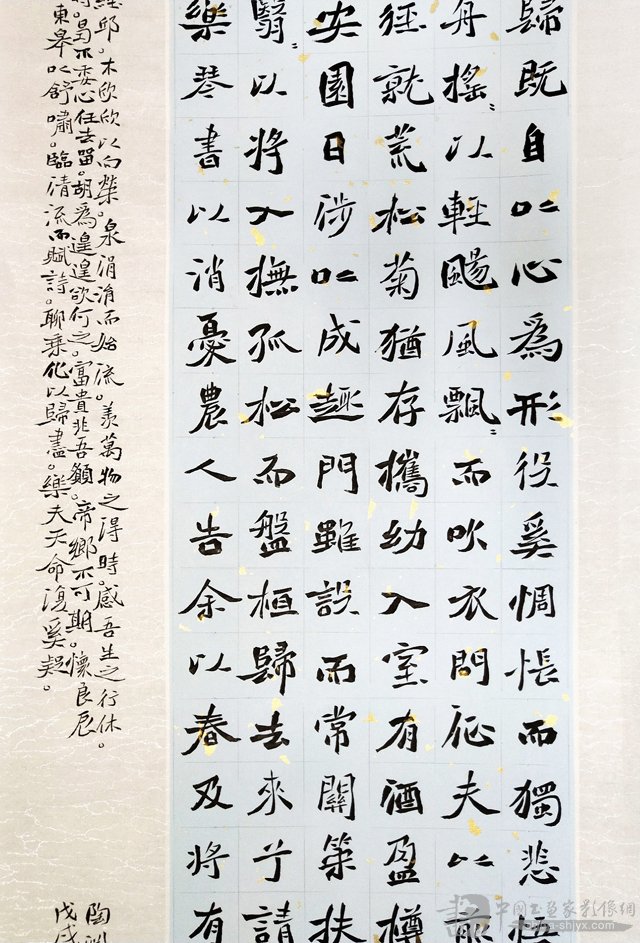 歸既自以心為形役奚惆悵而獨悲
舟搖〻以輕颺風飄〻而吹衣問征夫以前
徑就荒松菊猶存攜幼入室有酒盈樽
安園日涉以成趣門雖設而常關策扶
翳〻以將入撫孤松而盤桓歸去來兮請
樂琴書以消憂農人告余以春及將有
經邱。木欣欣以向榮。泉涓涓而始流。羨萬物之得時。感吾生之行休。
時。曷不委心任去留。胡為遑遑欲何之。富貴非吾願。帝鄉不可期。懷良辰
東皋以舒嘯。臨清流而賦詩。聊乘化以歸盡。樂夫天命復奚疑。
陶
戊戌